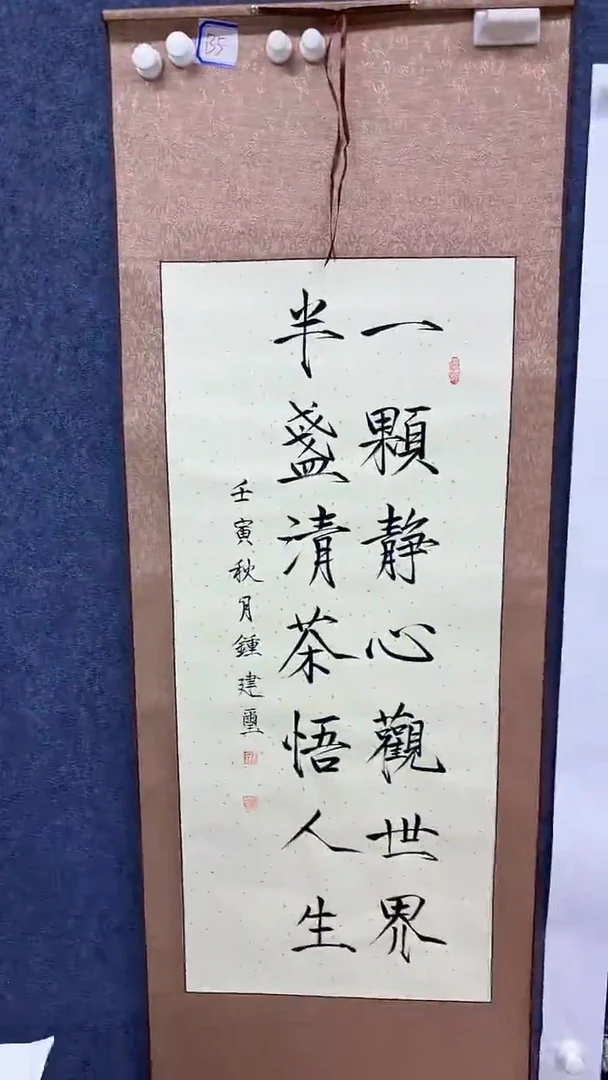 B5
一顆静心觀世界
半盞清茶悟人生
壬寅秋月鍾建璽